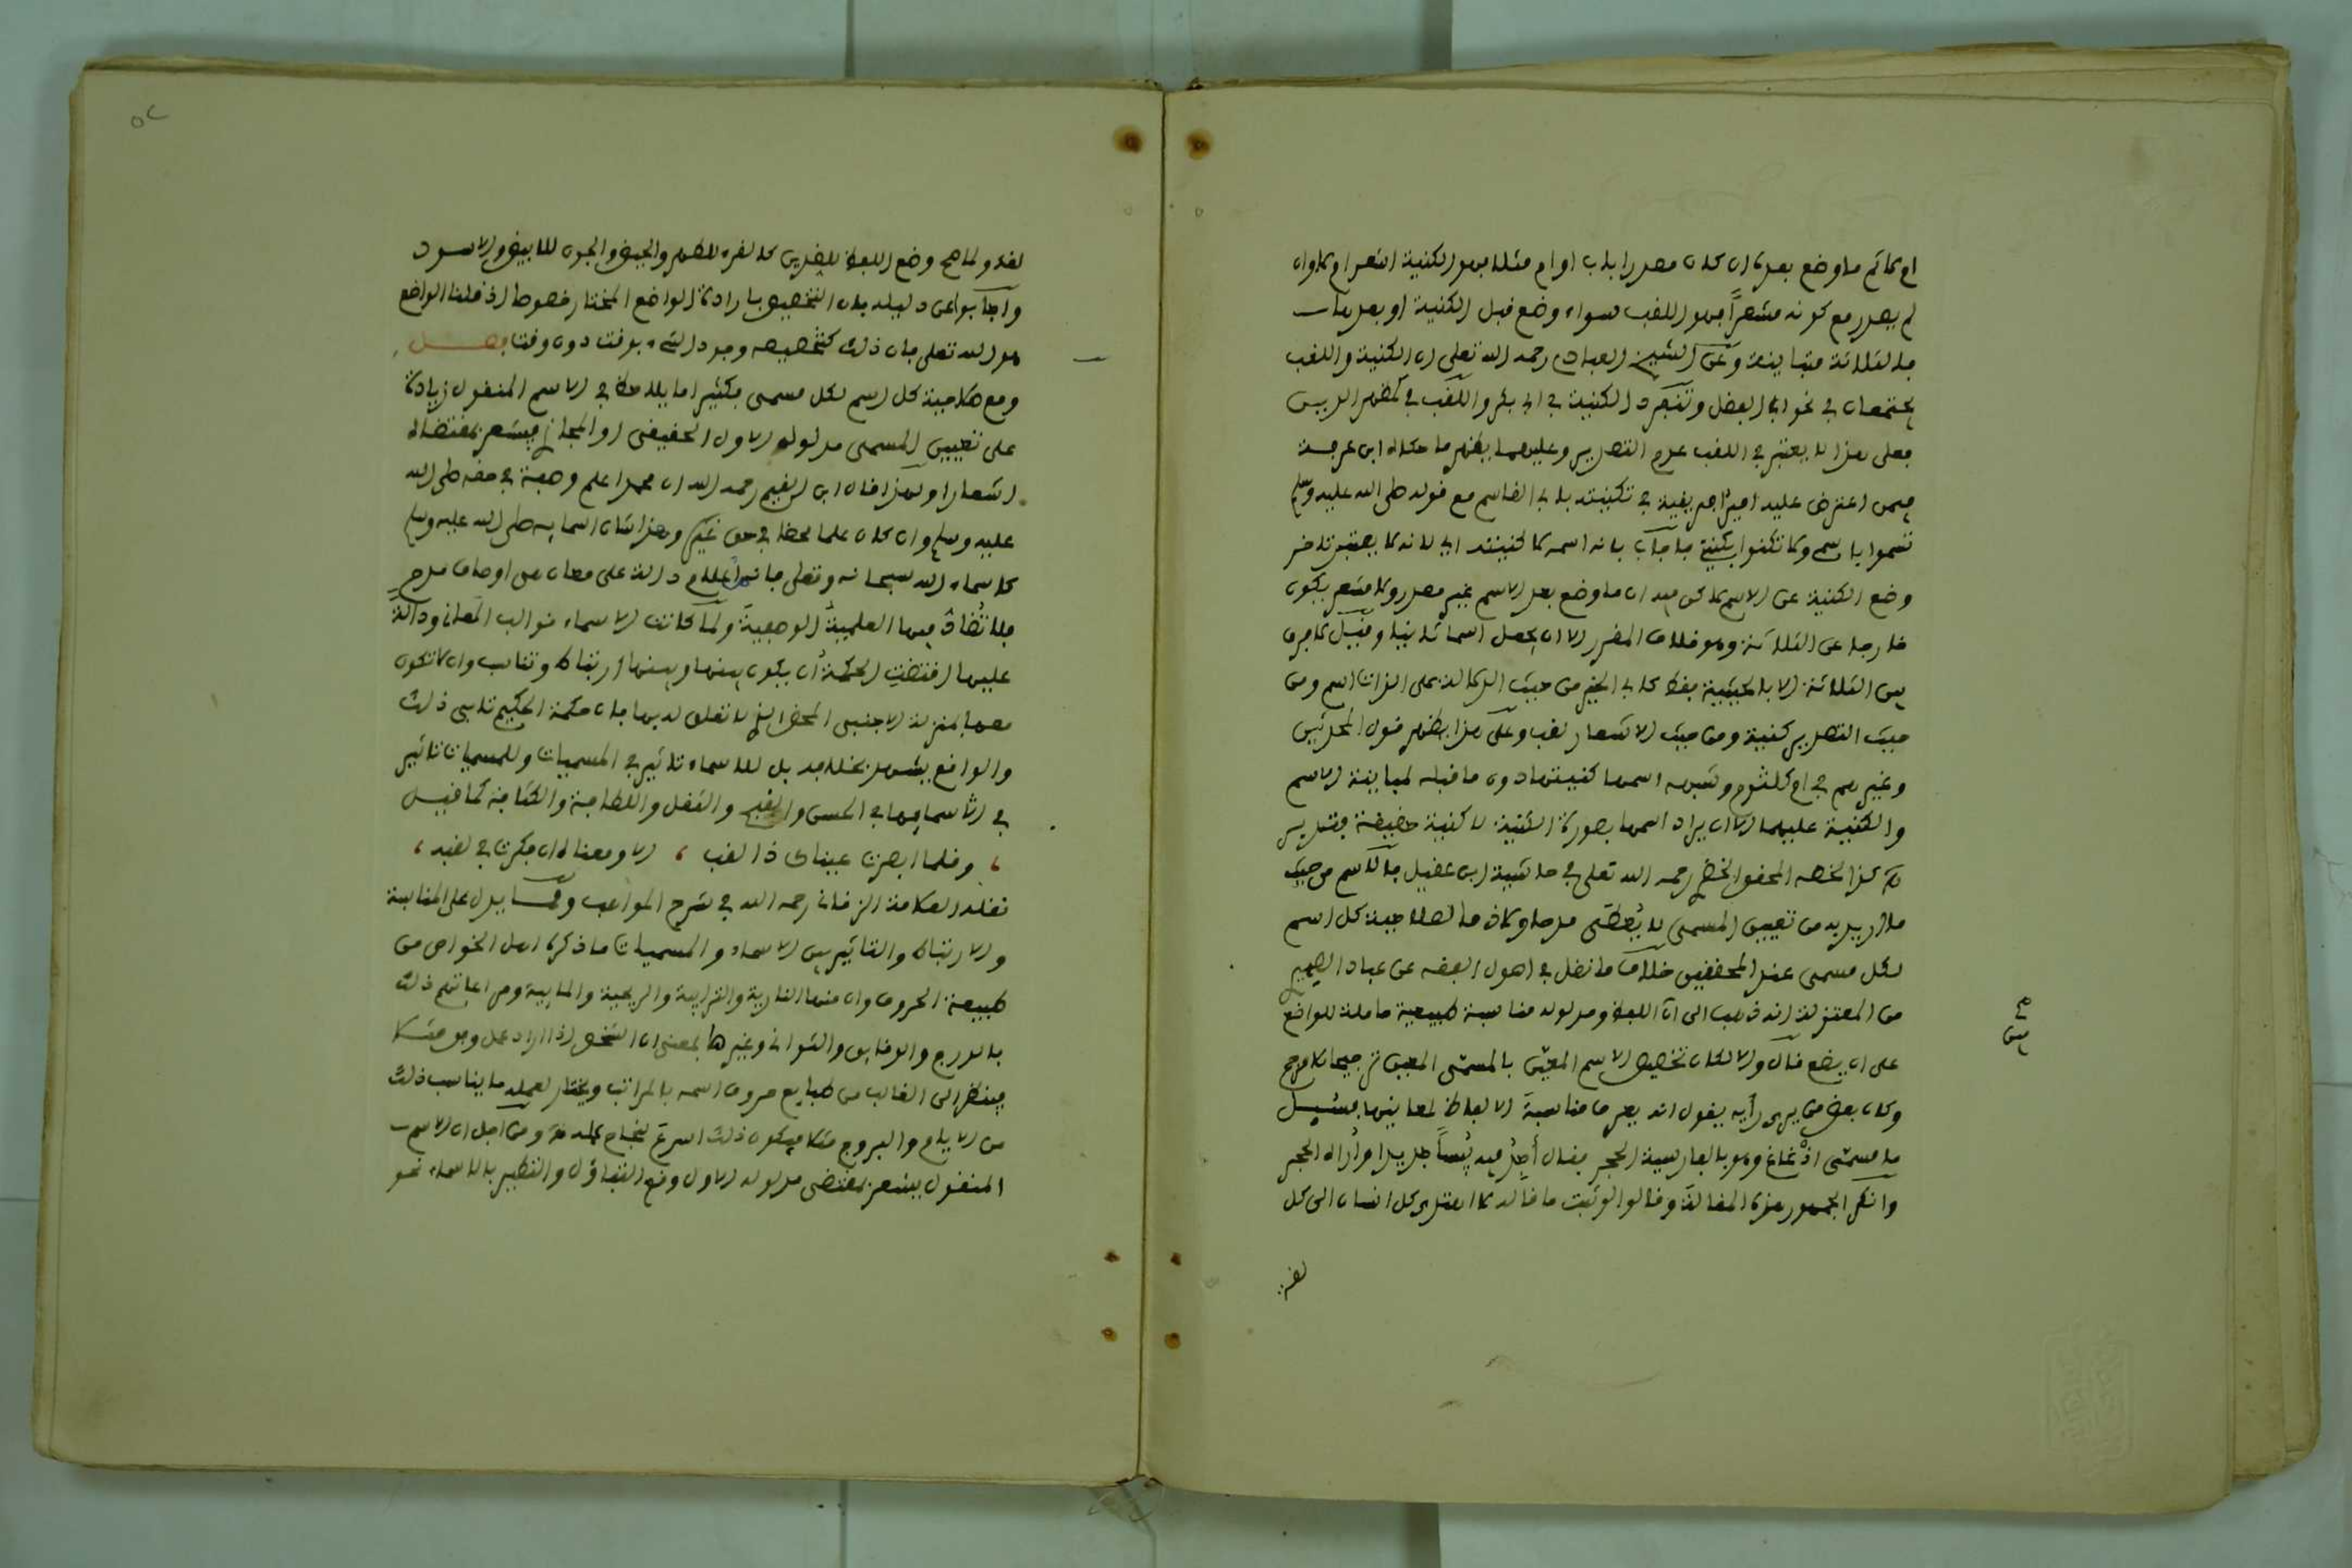 ام لا ثم ما وضع بعده ان كان مصدرا باب او ام مثلا فهو الكنية اشعر ام لا وان
لم يصدر مع كونه مشعرا فهو اللقب سواء وضع قبل الكنية او بعدها
فالثلاثة متباينة وعن الشيخ العبادي رحمه الله تعلى ان الكنية واللقب
يجتمعان في نحو ابي الفضل وتنفرد الكنية في ابي بكر واللقب في مظهر الدين
فعلى هذا لا يعتبر في اللقب عدم التصدير وعليهما يظهر ما حكاه ابن عرفة
فيمن اعترض عليه امير افريقية في تكنيته بابي القاسم مع قوله صلى الله عليه وسلم
تسموا باسمي ولا تكنوا بكنيتي فاجاب بانه اسمه لا كنيته اي لانه لا يعتبر تاخر
وضع الكنية عن الاسم لاكن فيه ان ما وضع بعد الاسم غير مصدر ولا مشعر يكون
خارجا عن الثلاثة وهو خلاف المقرر الا ان يجعل اسما ثانيا وقيل لا فرق
بين الثلاثة الا بالحيثية فقط كابي الخير من حيث الدلالة على الذات اسم ومن
حيث التصدير كنية ومن حيث الاشعار لقب وعلى هذا يظهر قول المحدثين
وغيرهم في ام كلثوم وشبهه اسمها كنيتها دون ما قبله لمباينة الاسم
والكنية عليهما الا ان يراد اسمها بصورة الكنية لا كنية حقيقة فتدبر
كذا لخصه المحقق الخضري رحمه الله تعلى في حاشية ابن عقيل فالاسم من حيث
ما اريد به من تعيين المسمى لا يعطي مدحا ولا ذما لصلاحية كل اسم
لكل مسمى عند المحققين خلاف ما نقل في اصول الفقه عن عباد الصيمري
من المعتزلة انه ذهب الى ان اللفظ ومدلوله مناسبة طبيعية حاملة للواضع
على ان يضع قال والا لكان تخصيص الاسم المعين بالمسمى المعين ترجيحا بلا مرجح
وكان بعض من يرى رأيه يقول انه يعرف مناسبة الالفاظ لمعانيها فسئل
ما مسمى اذغاغ وهو بالفارسية الحجر فقال أجد فيه يبسا شديدا وأراه الحجر
وانكر الجمهور هذه المقالة وقالوا لو ثبت ما قاله لاهتدى كل انسان الى كل
لغة
لغة ولما صح وضع اللفظ للضدين كالقرء للطهر والحيض والجون للابيض والاسود
واجابوا عن دليله بان التخصيص بارادة الواضع المختار خصوصا اذ قلنا الواضع
هو الله تعلى فان ذلك كتخصيصه وجود الشيء بوقت دون وقت فصل
ومع صلاحية كل اسم لكل مسمى فكثيرا ما يلاحظ في الاسم المنقول زيادة
على تعيين المسمى مدلوله الاول الحقيقي او المجازي فيشعر بمقتضاه
اشعارا ولهذا قال ابن القيم رحمه الله ان محمدا علم وصفة في حقه صلى الله
عليه وسلم وان كان علما محضا في حق غيره وهذا شان اسمايه صلى الله عليه وسلم
كاسماء الله سبحانه وتعلى فانها اعلام دالة على معان هي اوصاف مدح
فلا تضاد فيها العلمية الوصفية ولما كانت الاسماء قوالب المعاني ودالة
عليها اقتضت الحكمة أن يكون بينها وبينها ارتباط وتناسب وان لا تكون
معها بمنزلة الاجنبي المحض الذي لا تعلق له بها فان حكمة الحكيم تابى ذلك
والواقع يشهد بخلافه بل للاسماء تاثير في المسميات وللمسميات تاثر
في اسمايها في الحسن والقبح والثقل واللطافة والكثافة كما قيل
، وقلما ابصرت عيناك ذا لقب ، الا ومعناه ان فكرت في لقبه ،
نقله العلامة الزرقاني رحمه الله في شرح المواهب ومما يدل على المناسبة
والارتباط والتاثير بين الاسماء والمسميات ما ذكره اهل الخواص من
طبيعة الحروف وان منها النارية والترابية والريحية والمايية ومراعاتهم ذلك
بالدرج والدقايق والثواني وغيرها بمعنى ان الشخص اذا اراد عمل وفق مثلا
فينظر الى الغالب من طبايع حروف اسمه بالمراتب ويختار لعمله ما يناسب ذلك
من الايام والبروج مثلا فيكون ذلك اسرع لنجاح عمله ومن اجل ان الاسم
المنقول يشعر بمقتضى مدلوله الاول وقع التفاؤل والتطير بالاسماء نحو